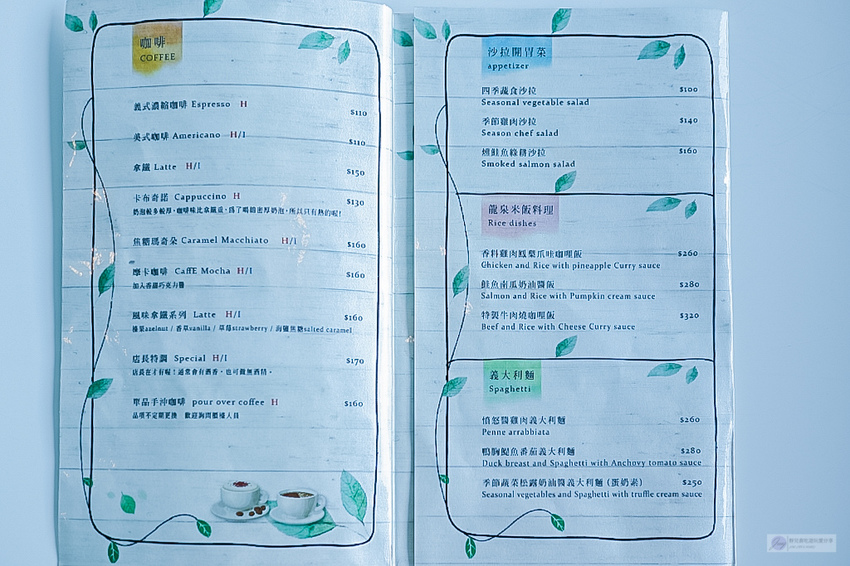 咖啡
COFFEE
義式濃縮咖啡 Espresso H
$110
美式咖啡 Americano H/I
$110
拿鐵 Latte H/I
$150
卡布奇諾 Cappuccino H
$130
奶泡較多較厚，咖啡味比拿鐵重，為了喝綿密厚奶泡，所以只有熱的喔！
焦糖瑪奇朵 Caramel Macchiato H/I
$160
摩卡咖啡 CaffE Mocha H/I
$160
加入香濃巧克力醬
風味拿鐵系列 Latte H/I
$160
榛果hazelnut / 香草vanilla / 草莓strawberry / 海鹽焦糖salted caramel
店長特調 Special H/I
$170
店長在才有喔！通常會有酒香，也可做無酒精。
單品手沖咖啡 pour over coffee H
$160
品項不定期更換 歡迎詢問櫃檯人員
沙拉開胃菜
appetizer
四季蔬食沙拉 $100
Seasonal vegetable salad
季節雞肉沙拉 $140
Season chef salad
燻鮭魚綠捲沙拉 $160
Smoked salmon salad
龍泉米飯料理
Rice dishes
香料雞肉鳳梨爪哇咖哩飯 $260
Chicken and Rice with pineapple Curry sauce
鮭魚南瓜奶油醬飯 $280
Salmon and Rice with Pumpkin cream sauce
特製牛肉燒咖哩飯 $320
Beef and Rice with Cheese Curry sauce
義大利麵
Spaghetti
憤怒醬雞肉義大利麵 $260
Penne arrabbiata
鴨胸鯷魚番茄義大利麵 $280
Duck breast and Spaghetti with Anchovy tomato sauce
季節蔬菜松露奶油醬義大利麵（蛋奶素） $250
Seasonal vegetables and Spaghetti with truffle cream sauce